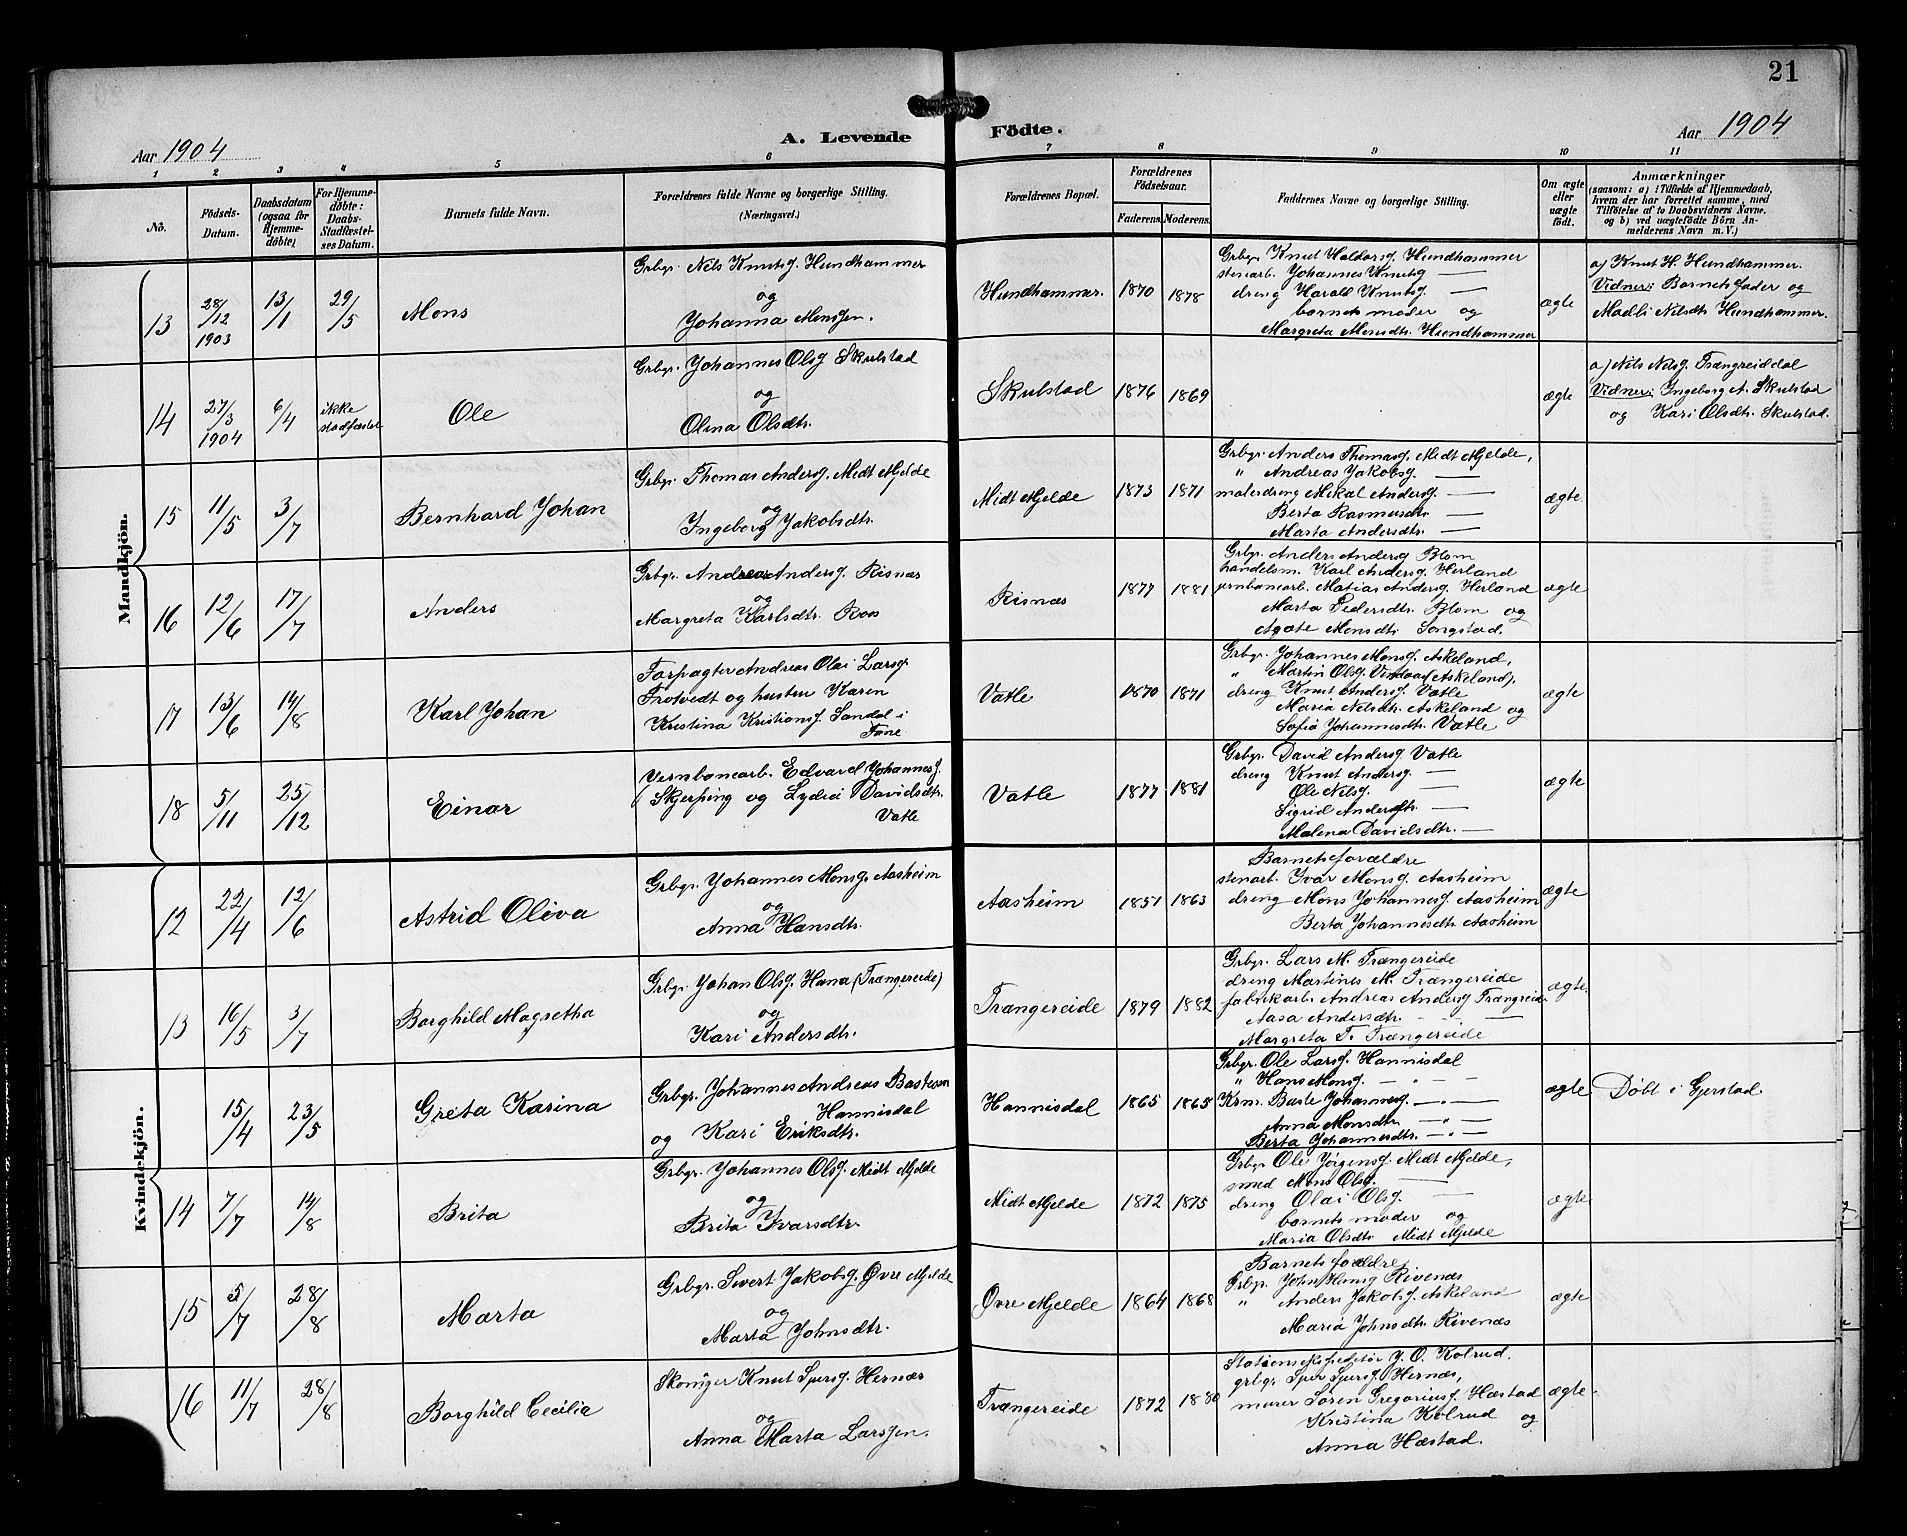 21
Aar 1904
A. Levende Födte.
Aar 1904
1 2 3 4 5 6 7 8 9 10 11
No.
Födsels-
Datum.
Daabsdatum
(ogsaa for
Hjemme-
döbte)
For Hjemme-
döbte:
Daabs-
Stadfæstel-
ses Datum.
Barnets fulde Navn.
Forældrenes fulde Navne og borgerlige Stilling.
(Næringsvei.)
Forældrenes Bopæl.
Forældrenes
Födselsaar.
Faderens. Moderens.
Faddernes Navne og borgerlige Stilling.
Om ægte
eller
uægte
födt.
Anmærkninger
(saasom: a) i Tilfælde af Hjemmedaab,
hvem der har forrettet samme, med
Tilföielse af to Daabsvidners Navne,
og b) ved uægtefödte Börn An-
melderens Navn m.V.)
Mandkjön.
13
28/12
1903
13/1
29/5
Mons
Grbgr. Nils Knutsg. Hundhammer
og
Johanna Monsgen.
Hundhammer.
1870
1878
Grbgr. Knut Haldorsg. Hundhammer
stenarb. Johannes Knutsg —
dreng Harald Knutsg. —
barnets moder og
Margreta Monsdtr. Hundhammer
ægte
a) Knut H. Hundhammer.
Vidner: Barnets fader og
Madli Nilsdtr Hundhammer.
14
27/3
1904
6/4
ikke
stadfæstet
Ole
Grbgr. Johannes Olsg Skulstad
og
Olina Olsdtr.
Skulstad
1876
1869
ægte
a) Nils Nilsg. Trængreiddal
Vidner: Ingeborg A. Skulstad
og Kari Olsdtr. Skulstad.
15
11/5
3/7
Bernhard Johan
Grbgr. Thomas Andersg. Midt Mjelde
og
Ingeborg Jakobsdtr.
Midt Mjelde
1873
1871
Grbgr. Anders Thomasg. Midt Mjelde,
" Andreas Jakobsg. —
malerdreng Mikal Andersg. —
Berta Rasmusdtr —
Marta Andersdtr. —
ægte
16
12/6
17/7
Anders
Grbgr. Andreas Andersg. Risnæs
og
Margreta Karlsdtr. Roos
Risnæs
1877
1881
Grbgr. Anders Andersg Blom
handelsm. Karl Andersg. Herland
jernbanearb. Matias Andersg. Herland
Marta Pedersdtr. Blom og
Agate Monsdtr. Songstad.
ægte
17
13/6
14/8
Karl Johan
Forpagter Andreas Olai Larsg.
Trotvedt og hustru Karen
Kristina Kristiansg. Sandal i
Fane
Vatle
1870
1871
Grbgr. Johannes Monsg. Askeland,
" Martin Olsg. (Askeland),
dreng Knut Andersg. Vatle
Maria Nilsdtr. Askeland og
Sofia Johannesdtr. Vatle
ægte
18
5/11
25/12
Einar
Jernbanearb. Edvard Johannesg.
Skjerping og Lydia Davidsdtr.
Vatle
Vatle
1877
1881
Grbgr. David Andersg Vatle
dreng Knut Andersg. —
Ole Nilsg. —
Sigrid Andersdtr. —
Malena Davidsdtr. —
ægte
Kvindekjön.
12
22/4
12/6
Astrid Oliva
Grbgr. Johannes Monsg. Aasheim
og
Anna Hansdtr.
Aasheim
1851
1863
Barnets forældre
stenarb. Ivar Monsg. Aasheim
dreng Mons Johannesg. Aasheim
Berta Johannesdtr. Aasheim
ægte
13
16/5
3/7
Borghild Magretha
Grbgr. Johan Olsg. Hana (Trængereide)
og
Kari Andersdtr.
Trængereide
1879
1882
Grbgr. Lars M. Trængereide
dreng Martines M. Trængereide
fabrikarb. Andreas Andersg Trængreide
Aasa Andersdtr. —
Margreta T. Trængereide
ægte
15/4
23/5
Greta Karina
Grbgr. Johannes Andreas Bastesen
Hannisdal
og Kari Eriksdtr.
Hannisdal
1865
1865
Grbgr. Ole Larsg. Hannisdal
" Hans Monsg. — " —
Krm. Baste Johannesg. — " —
Anna Monsdtr — " —
Berta Johannesdtr. — " —
ægte
Döbt i Gjerstad
14
7/7
14/8
Brita
Grbgr. Johannes Olsg. Midt Mjelde
og
Brita Ivarsdtr.
Midt Mjelde
1872
1875
Grbgr Ole Jörgensg. Midt Mjelde,
smed Mons Olsg. —
dreng Olai Olsg. —
barnets moder og
Maria Olsdtr Midt Mjelde
ægte
15
5/7
28/8
Marta
Grbgr. Sivert Jakobsg. Øvre Mjelde
og
Marta Johnsdtr.
Øvre Mjelde
1864
1868
Barnets forældre
Grbgr. John Rivenæs
" Anders Jakobsg. Askeland
Maria Johnsdtr. Rivenæs
ægte
16
11/7
28/8
Borghild Cecilia
Skomager Knut Sjursg. Hernæs
og
Anna Marta Larsgen.
Trængereide
1872
1880
Stationsekspeditör J. O. Kolrud.
grbgr. Sjur Sjursg. Hernæs,
murer Sören Gregoriusg. Hæstad
Kristina Kolrud og
Anna Hæstad.
ægte